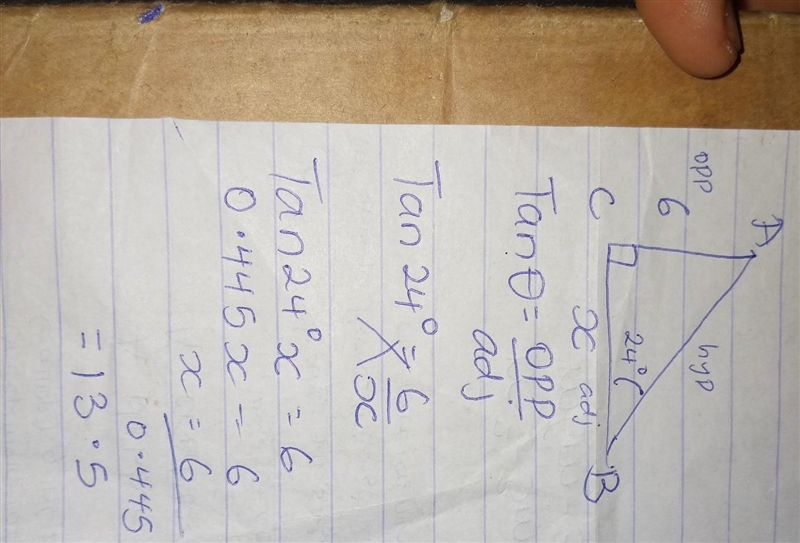 A
opp 6 hyp
24°
C x adj B
Tan θ = opp
adj
Tan 24° = 6
x
Tan 24° x = 6
0.445 x = 6
x = 6
0.445
= 13.5